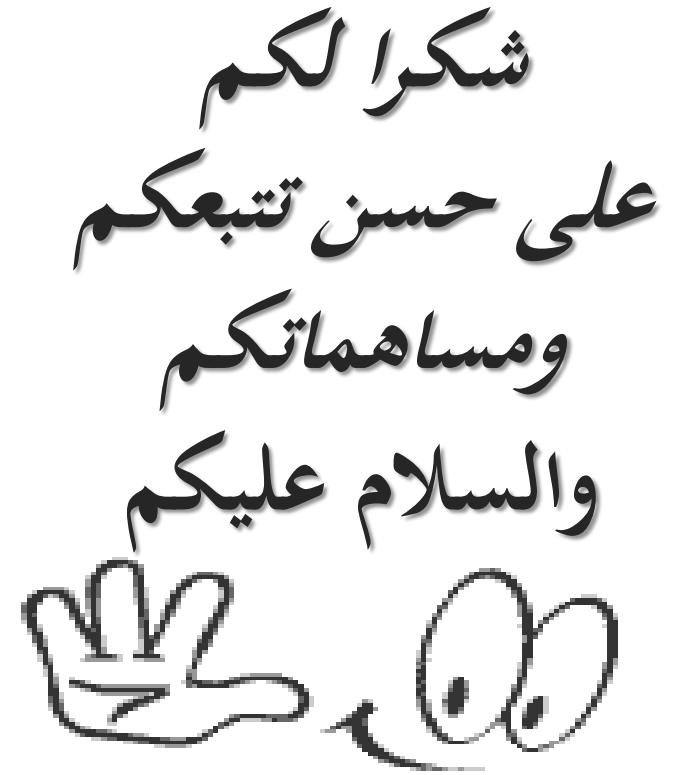 شكرا لكم
على حسن تتبعكم
ومساهماتكم
والسلام عليكم